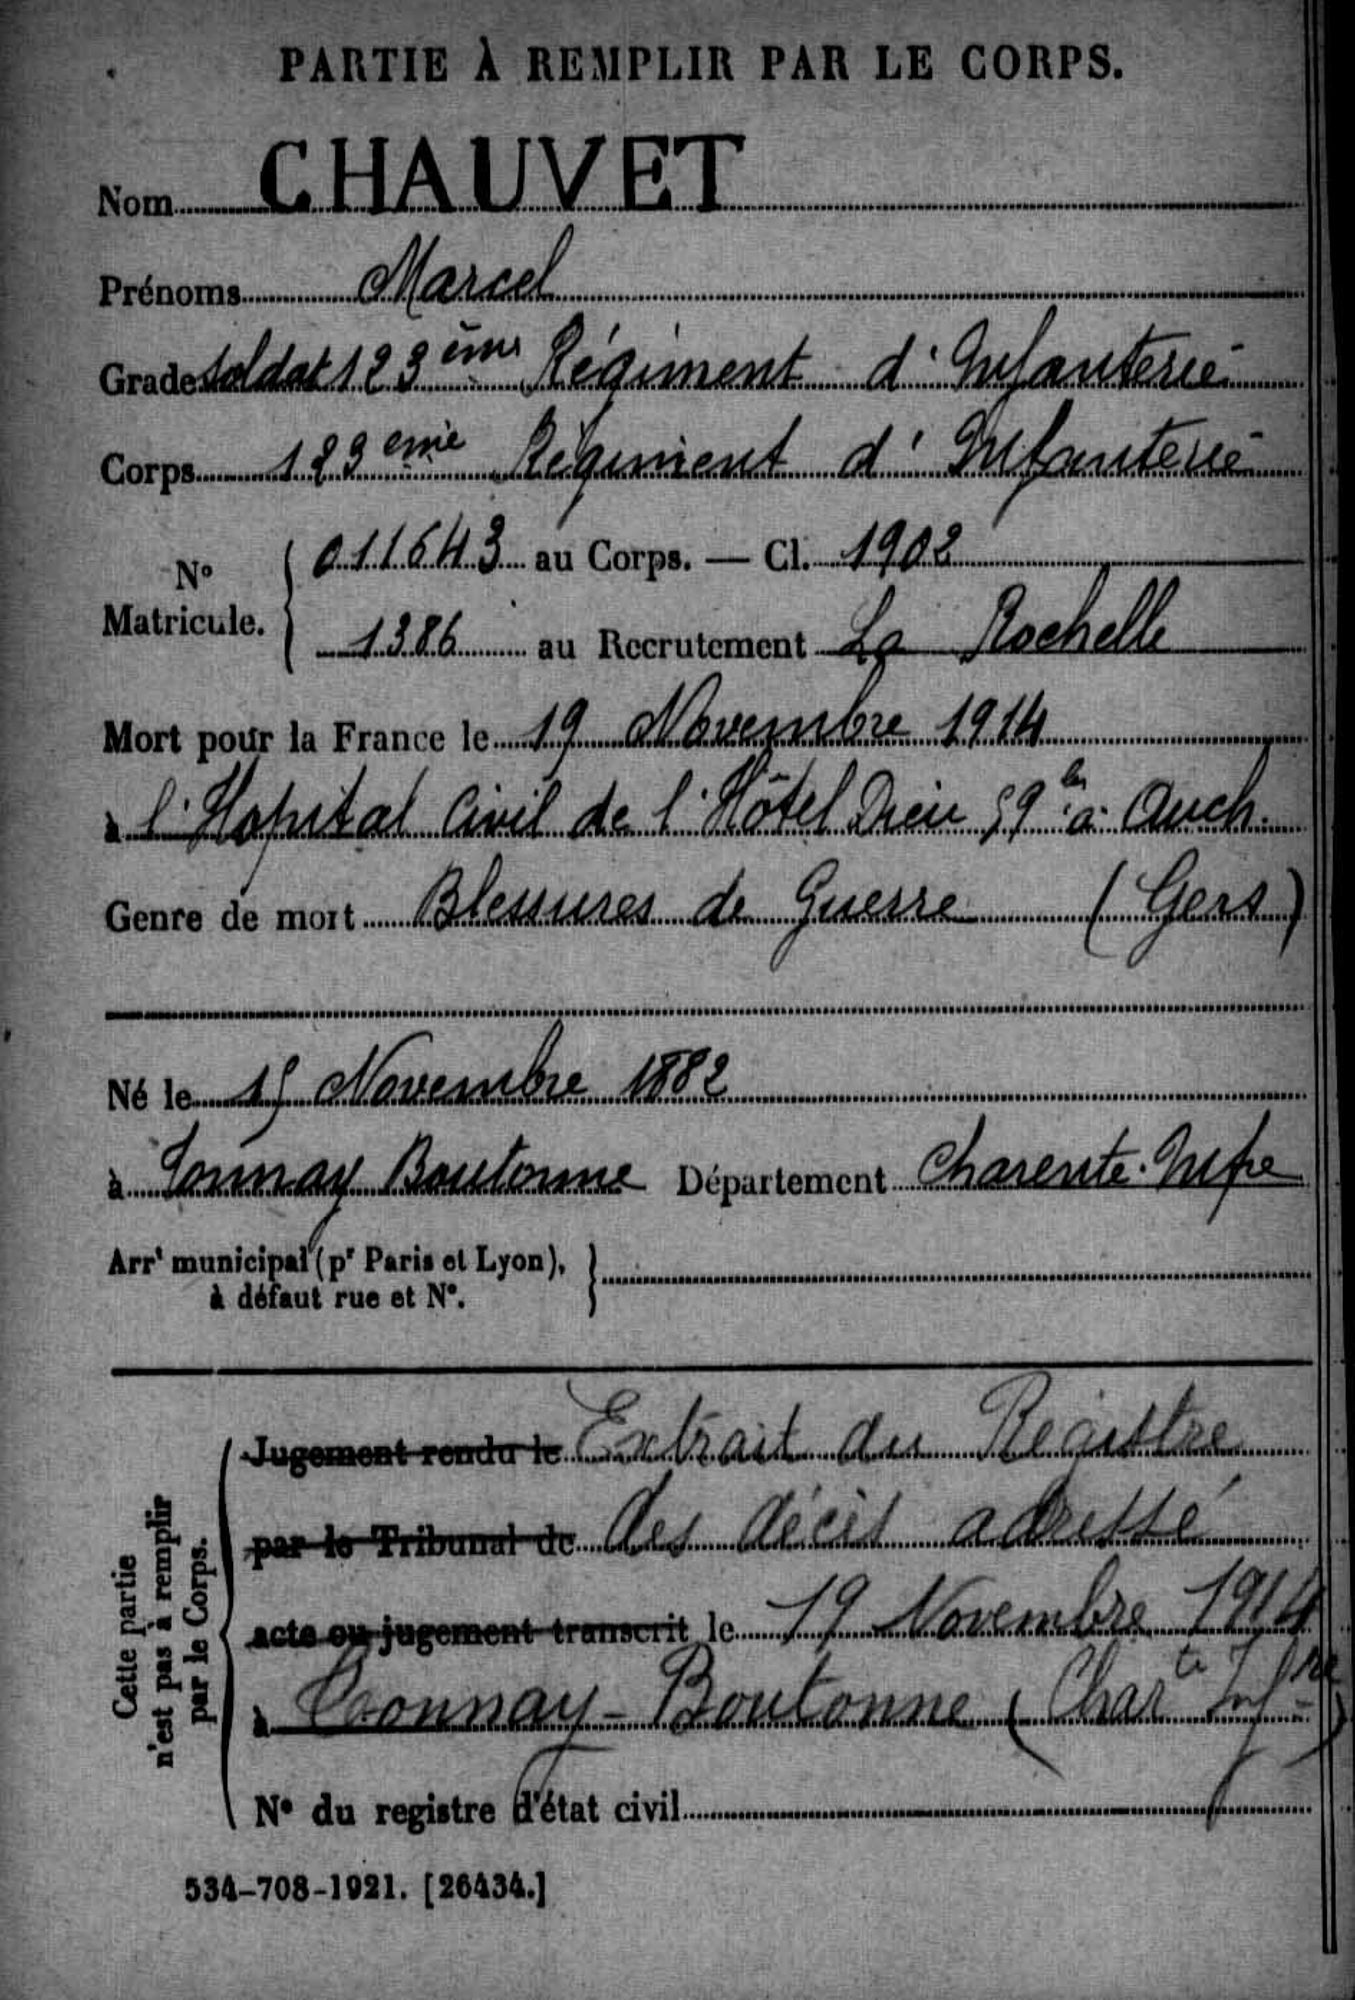 PARTIE À REMPLIR PAR LE CORPS.
Nom CHAUVET
Prénoms Marcel
Grade soldat 123ème Régiment d'Infanterie
Corps 123eme Régiment d'Infanterie
N° Matricule. 011643 au Corps. — Cl. 1902
1386 au Recrutement La Rochelle
Mort pour la France le 19 Novembre 1914
à l'Hopital Civil de l'Hôtel Dieu à Auch.
Genre de mort Blessures de Guerre (Gers)
Né le 15 Novembre 1882
à Tonnay Boutonne Département Charente-Infre
Arrt municipal (pr Paris et Lyon),
à défaut rue et N°.
Cette partie
n'est pas à remplir
par le Corps.
Jugement rendu le Extrait du Registre
par le Tribunal de des décès adressé
acte ou jugement transcrit le 19 Novembre 1914
à Tonnay-Boutonne (Charte Infre)
N° du registre d'état civil
534-708-1921. [26434.]